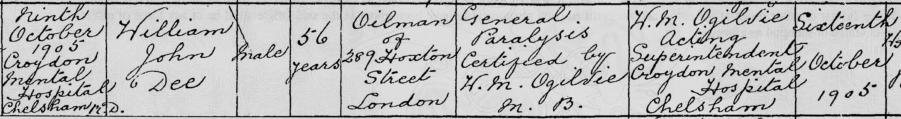 Ninth
October
1905
Croydon
Mental
Hospital
Chelsham R.D.
William
John
Dee
Male
56
years
Oilman
of
289 Hoxton
Street
London
General
Paralysis
Certified by
W. M. Ogilvie
M. B.
W. M. Ogilvie
Acting
Superintendent
Croydon Mental
Hospital
Chelsham
Sixteenth
October
1905